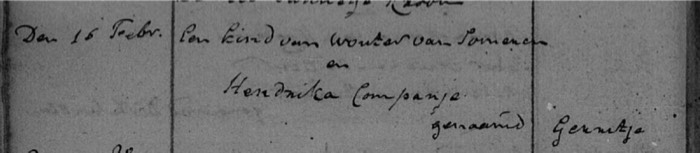 Den 16 Febr. Een kind van Wouter van Someren
en
Hendrika Companje
genaamd Gerritje